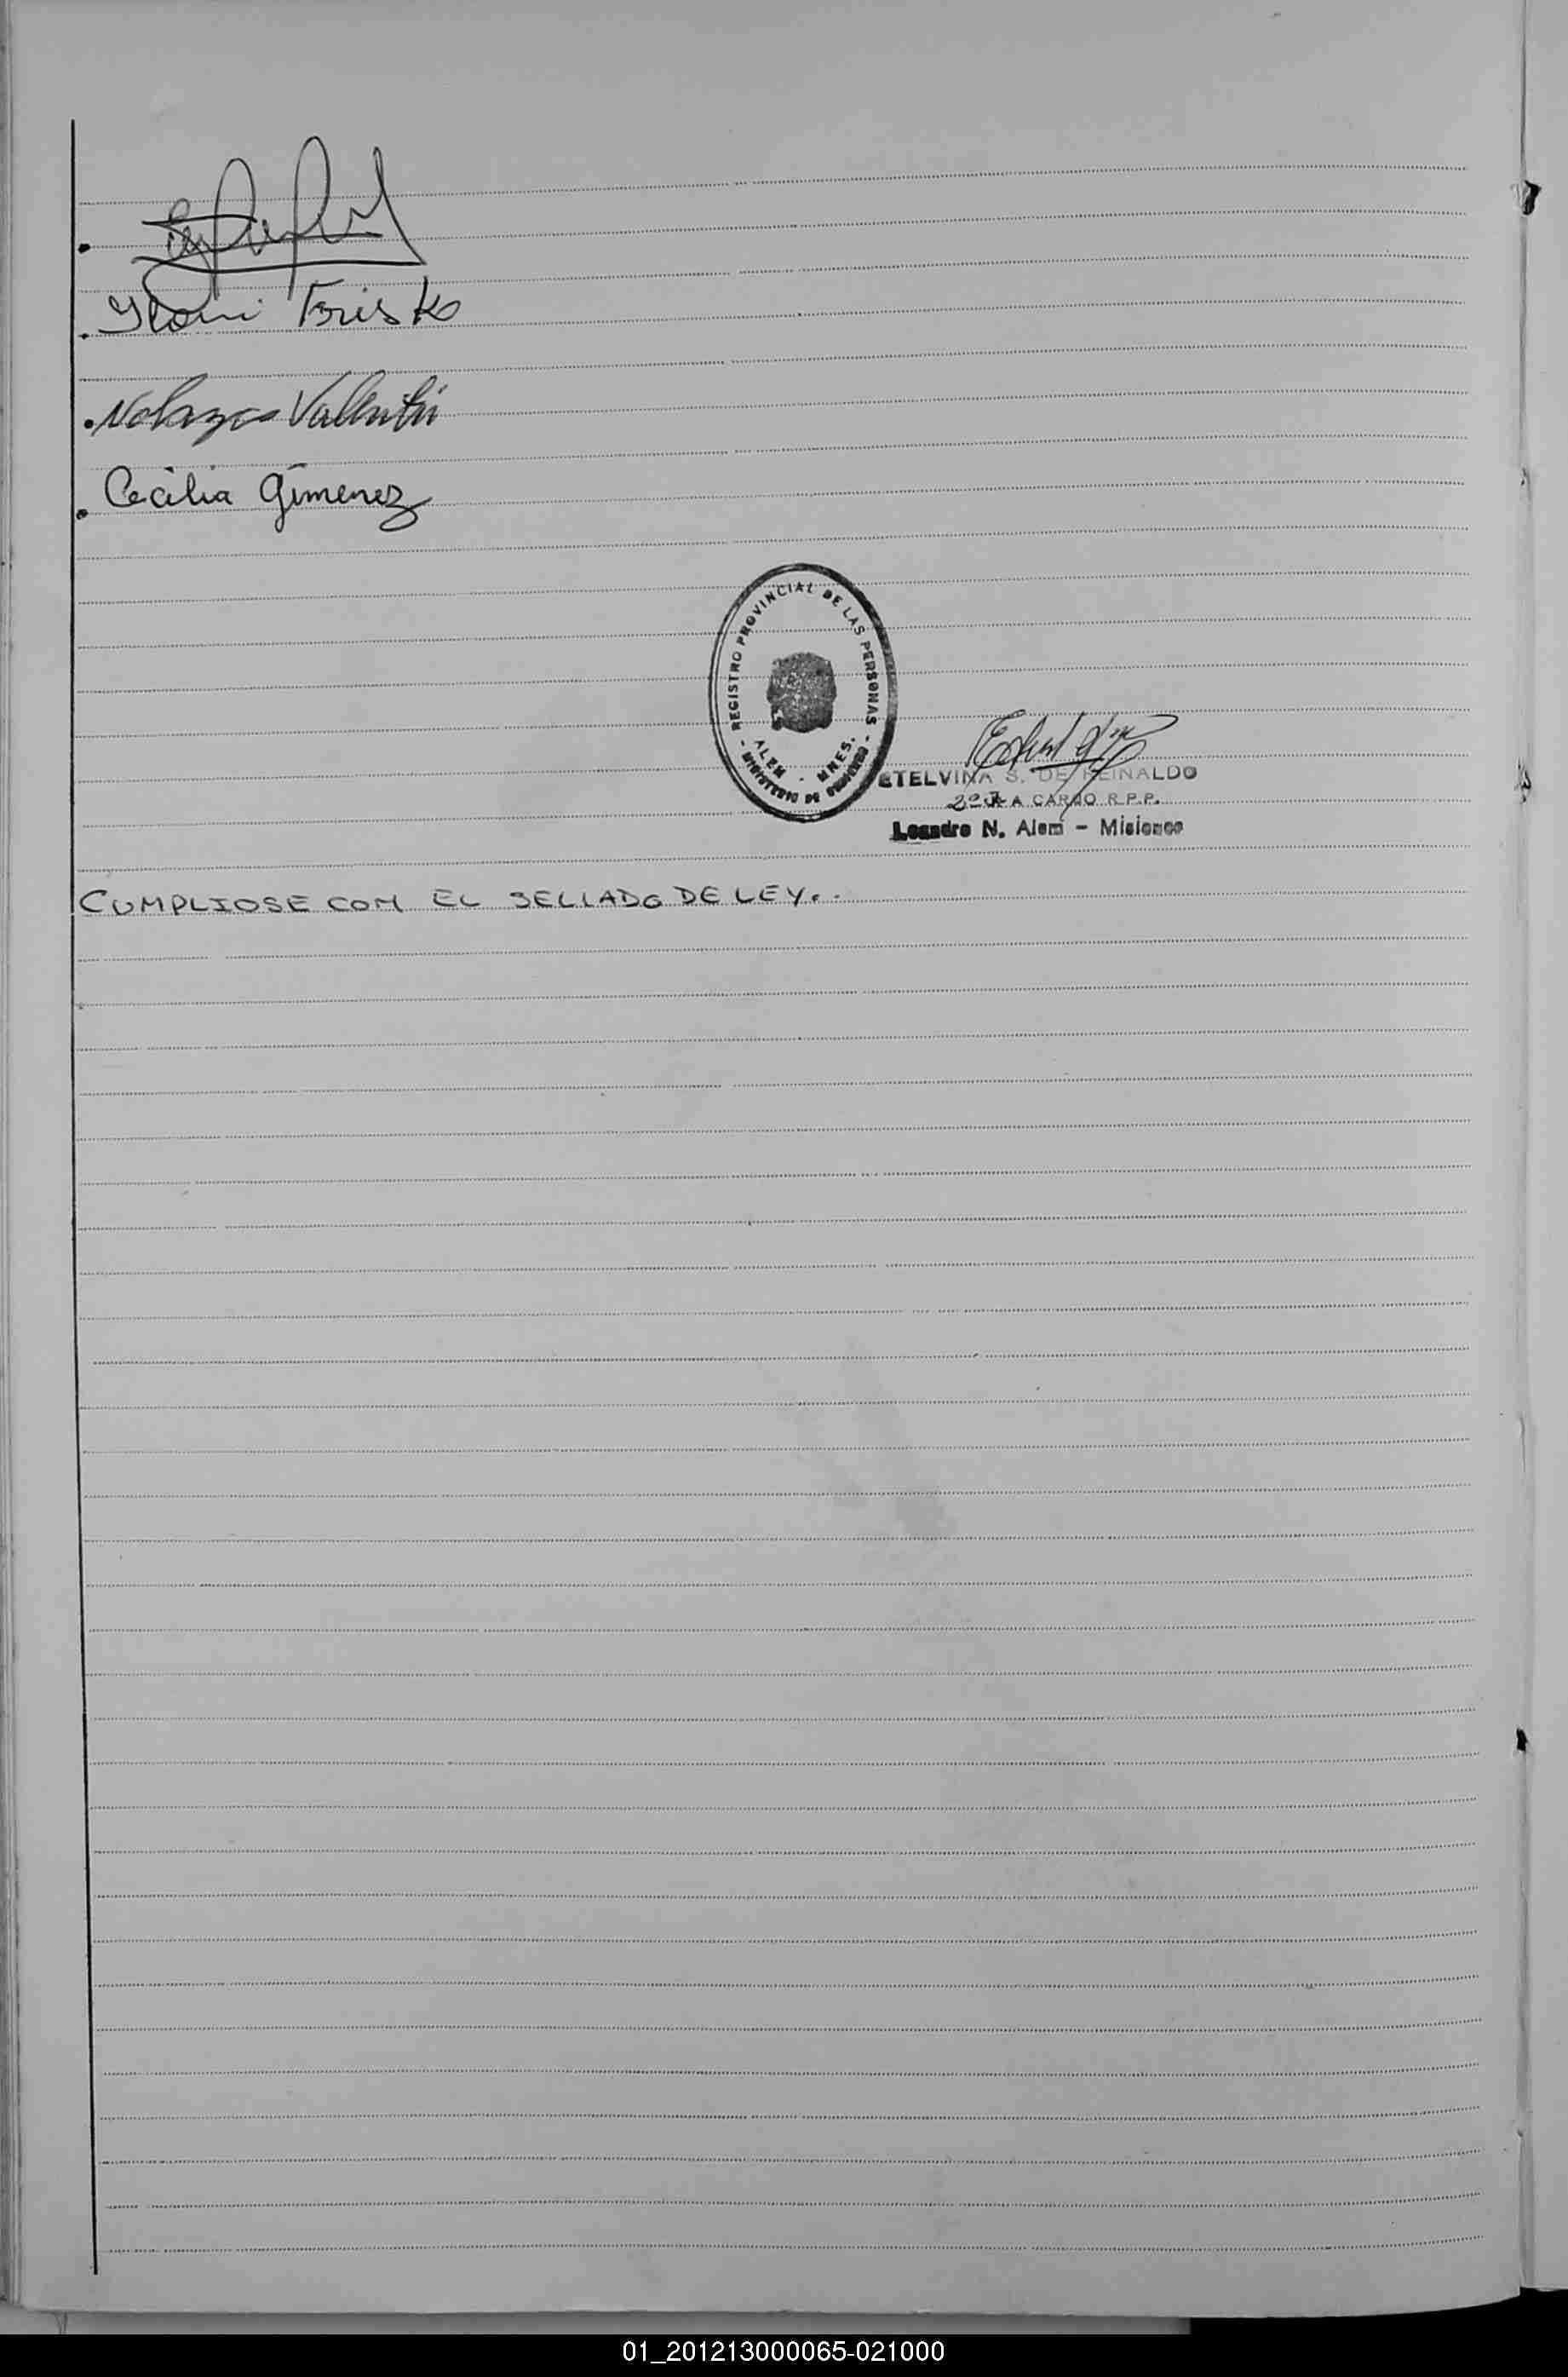 Frisko
Valentin
Cecilia Gimenez
REGISTRO PROVINCIAL DE LAS PERSONAS
ALEM - MNES.
MINISTERIO DE GOBIERNO
ETELVINA S. DE REINALDO
A CARGO R.P.P.
Leandro N. Alem - Misiones
CUMPLIOSE CON EL SELLADO DE LEY.
01_201213000065-021000